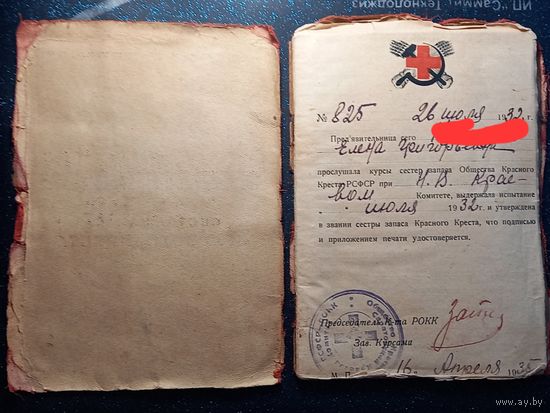 ИП "Самми, Технолоджиз
№ 825 26 июля 1932 г.
Пред'явительница сего
Елена Григорьевна
прослушала курсы сестер запаса Общества Красного
Креста РСФСР при Н. В. Крае-
вом Комитете, выдержала испытание
июля 1932 г. и утверждена
в звании сестры запаса Красного Креста, что подписью
и приложением печати удостоверяется.
Председатель К-та РОКК
Зав. Курсами
М. П. 16 Апреля 1935
www.ay.by